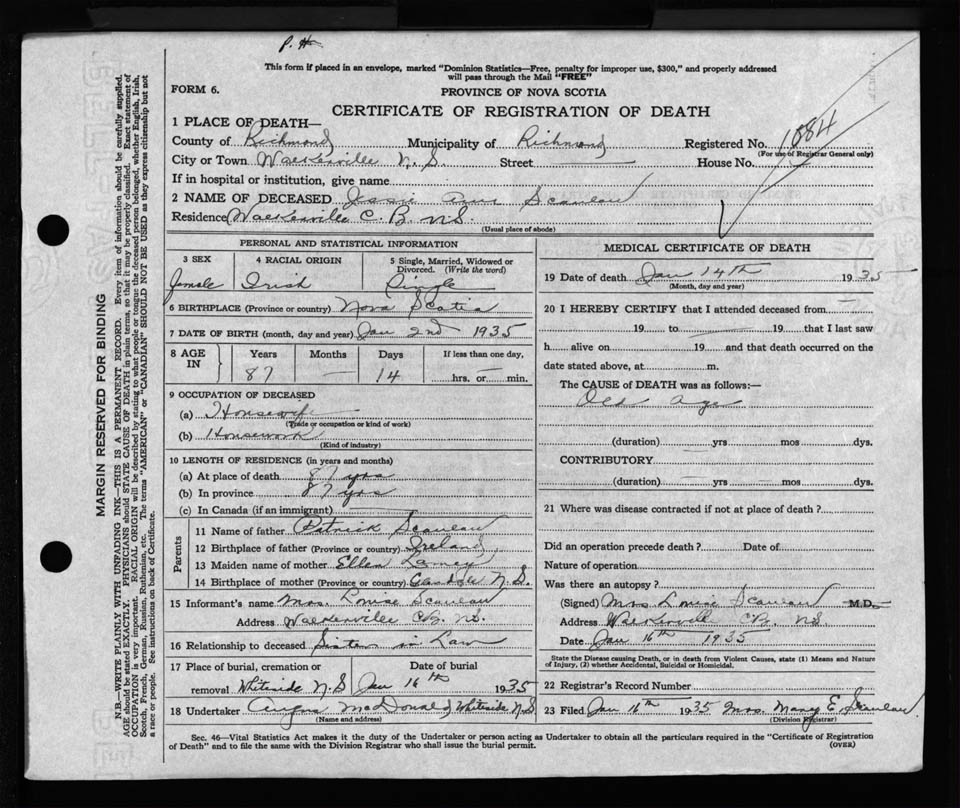 P. H
This form if placed in an envelope, marked "Dominion Statistics—Free, penalty for improper use, $300," and properly addressed
will pass through the Mail "FREE"
FORM 6.
PROVINCE OF NOVA SCOTIA
CERTIFICATE OF REGISTRATION OF DEATH
1 PLACE OF DEATH—
County of Richmond Municipality of Richmond Registered No. 1084
(For use of Registrar General only)
City or Town Walkerville N. S. Street House No.
If in hospital or institution, give name
2 NAME OF DECEASED Jessie Ann Scanlan
Residence Walkerville C. B. N.S.
(Usual place of abode)
PERSONAL AND STATISTICAL INFORMATION
3 SEX
4 RACIAL ORIGIN
5 Single, Married, Widowed or
Divorced. (Write the word)
female Irish Single
6 BIRTHPLACE (Province or country) Nova Scotia
7 DATE OF BIRTH (month, day and year) Jan 2nd 1935
8 AGE IN
Years Months Days If less than one day,
87 — 14 hrs. or min.
9 OCCUPATION OF DECEASED
(a) Housewife
(Trade or occupation or kind of work)
(b) Housework
(Kind of industry)
10 LENGTH OF RESIDENCE (in years and months)
(a) At place of death 87 yrs
(b) In province 87 yrs
(c) In Canada (if an immigrant)
Parents
11 Name of father Patrick Scanlan
12 Birthplace of father (Province or country) Ireland
13 Maiden name of mother Ellen
14 Birthplace of mother (Province or country) N. S.
15 Informant's name Mrs. Louise Scanlan
Address Walkerville C.B. N.S.
16 Relationship to deceased Sister in Law
17 Place of burial, cremation or Date of burial
removal Whiteside N.S Jan 16th 1935
18 Undertaker Angus McDonald Whiteside N.S
(Name and address)
MEDICAL CERTIFICATE OF DEATH
19 Date of death Jan 14th 1935
(Month, day and year)
20 I HEREBY CERTIFY that I attended deceased from
19 to 19 that I last saw
h alive on 19 and that death occurred on the
date stated above, at m.
The CAUSE of DEATH was as follows:—
Old age
(duration) yrs mos dys.
CONTRIBUTORY
(duration) yrs mos dys.
21 Where was disease contracted if not at place of death?
Did an operation precede death? Date of
Nature of operation
Was there an autopsy?
(Signed) Mrs Louise Scanlan M.D.
Address Walkerville C.B. N.S
Date Jan 16th 1935
State the Disease causing Death, or in death from Violent Causes, state (1) Means and Nature
of Injury, (2) whether Accidental, Suicidal or Homicidal.
22 Registrar's Record Number
23 Filed Jan 16th 1935 Mrs. Mary E. Scanlan
(Division Registrar)
Sec. 46—Vital Statistics Act makes it the duty of the Undertaker or person acting as Undertaker to obtain all the particulars required in the "Certificate of Registration
of Death" and to file the same with the Division Registrar who shall issue the burial permit.
(OVER)
MARGIN RESERVED FOR BINDING
N.B.—WRITE PLAINLY WITH UNFADING INK—THIS IS A PERMANENT RECORD. Every item of information should be carefully supplied.
AGE should be stated EXACTLY. PHYSICIANS should STATE CAUSE OF DEATH in plain terms, so that it may be properly classified. Exact statement of
OCCUPATION is very important. RACIAL ORIGIN will be described by stating to what people or tongue the deceased person belonged, whether English, Irish,
Scotch, French, German, Russian, Ruthenian, etc. The terms "AMERICAN" or "CANADIAN" SHOULD NOT BE USED as they express citizenship but not
a race or people. See instructions on back of Certificate.